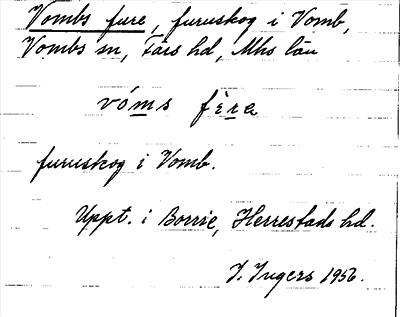 Vombs fure, furuskog i Vomb,
Vombs sn, Färs hd, Mhs län
vóms fère
furuskog i Vomb.
Uppt. i Borrie, Herrestads hd.
I. Ingers 1956.